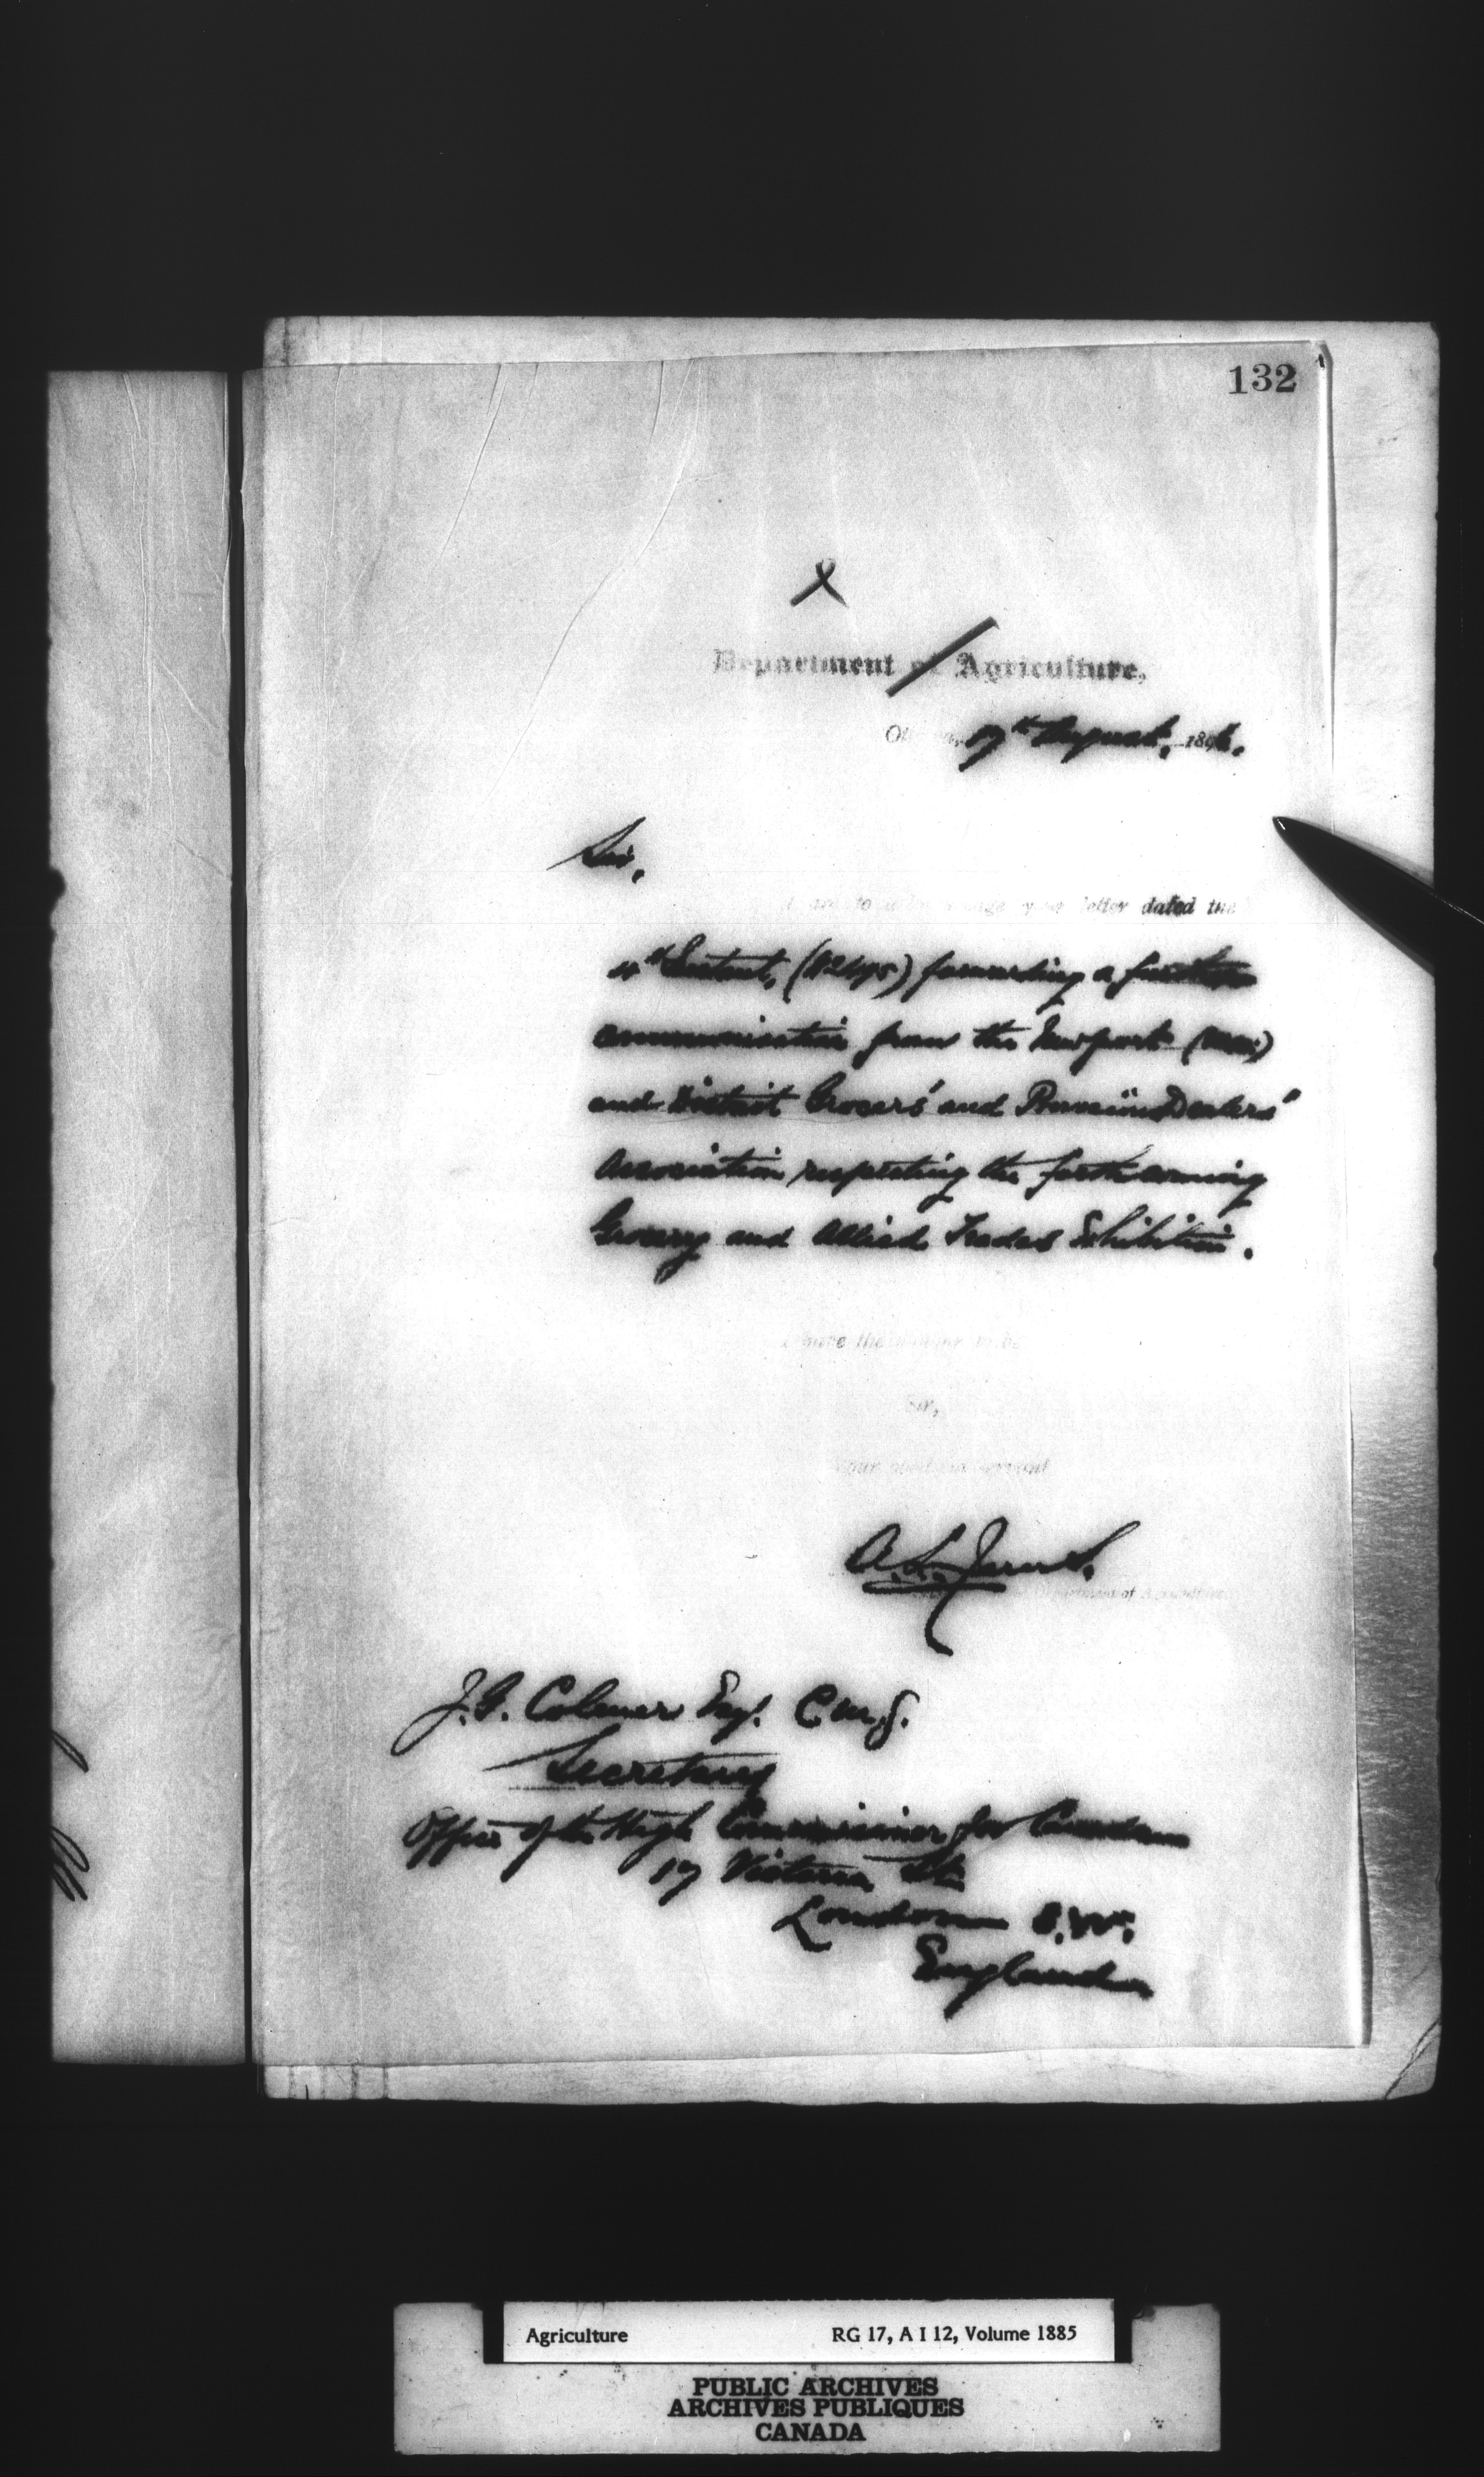 132
Department of Agriculture,
Ottawa, 17th August, 1896.
Sir,
I am to acknowledge your letter dated the
4th Instant, forwarding a further
communication from the Newport (Mon)
and District Grocers' and Provision Dealers'
Association respecting the forthcoming
Grocery and Allied Trades Exhibition.
I have the honour to be
Sir,
Your obedient servant
A. L. Jarvis.
Department of Agriculture
J. G. Colmer Esq. C.M.G.
Secretary
Office of the High Commissioner for Canada
17 Victoria St.
London S.W.
England
Agriculture RG 17, A I 12, Volume 1885
PUBLIC ARCHIVES
ARCHIVES PUBLIQUES
CANADA